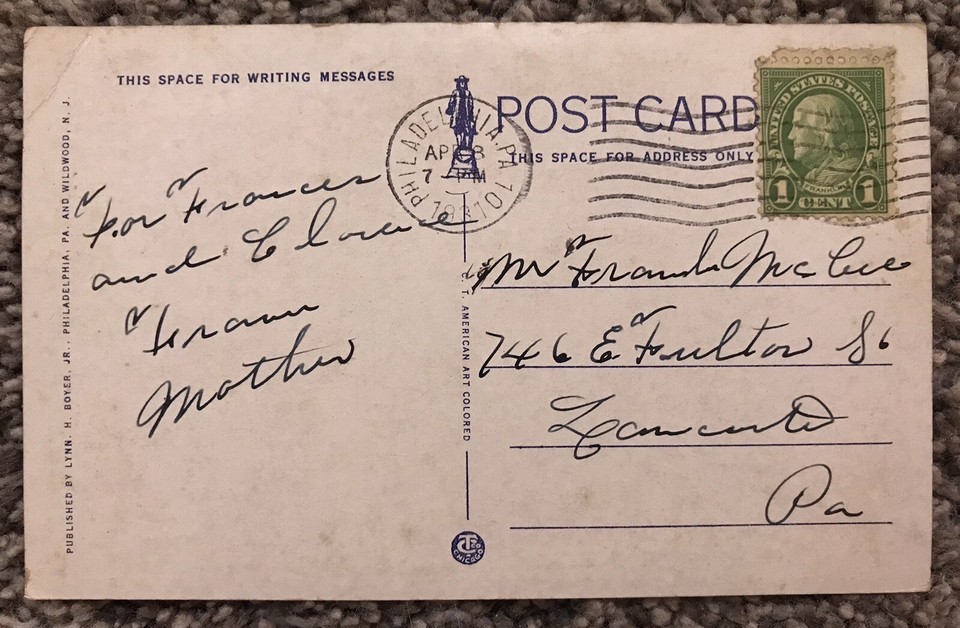 THIS SPACE FOR WRITING MESSAGES
POST CARD
THIS SPACE FOR ADDRESS ONLY
PHILADELPHIA, PA.
APR 8
7 PM
1931
UNITED STATES POSTAGE
FRANKLIN
1 CENT 1
For Frances
and Clorence
From
Mother
Mrs Frank McCue
746 E Fulton St
Lancaster
Pa
PUBLISHED BY LYNN H. BOYER, JR., PHILADELPHIA, PA. AND WILDWOOD, N. J.
C. T. AMERICAN ART COLORED
CHICAGO